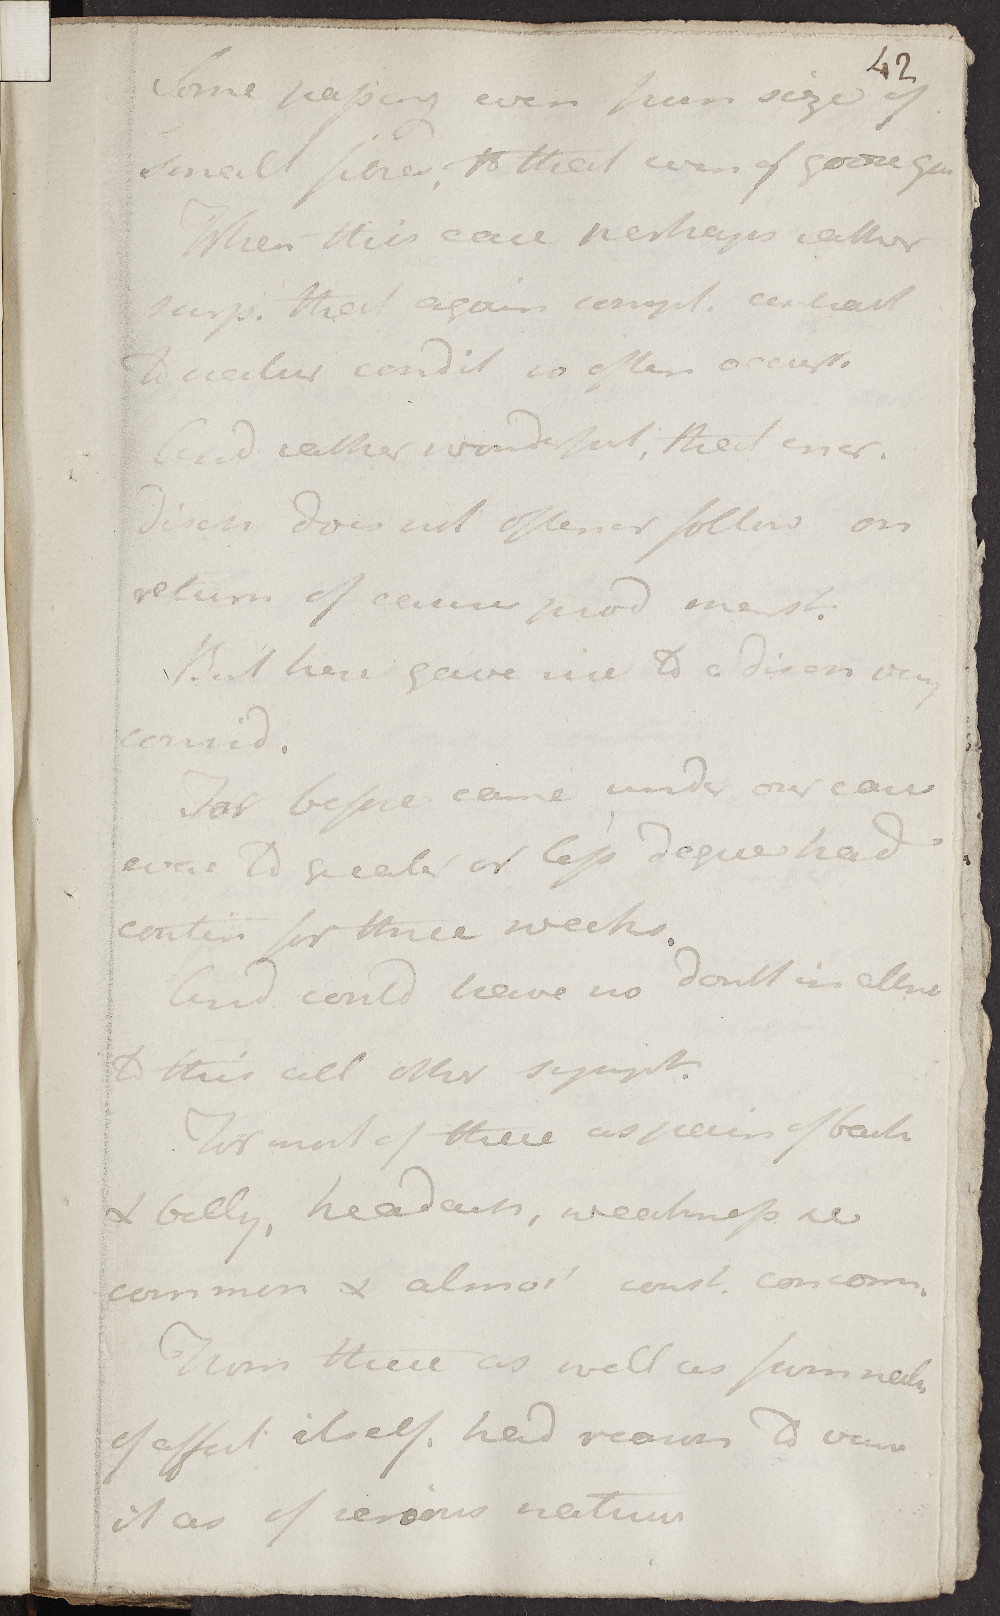 42
Some passing even from size of
small fibres, to that even of goose qu
When this case perhaps rather
surp. that again compl. contract
to natur condit so often occurs.
And rather wonderful, that
disch does not oftener follow on
return of causes prod menst.
But here gave rise to a disch very
consid.
For before came under our care
even to greater or less degree had
contin for three weeks.
And could have no doubt in
to this all other sympt.
For most of these as pain of back
& belly, headach, weakness are
common & almost const. concom.
From these as well as from natu
of affect itself, had reason to view
it as of serious nature